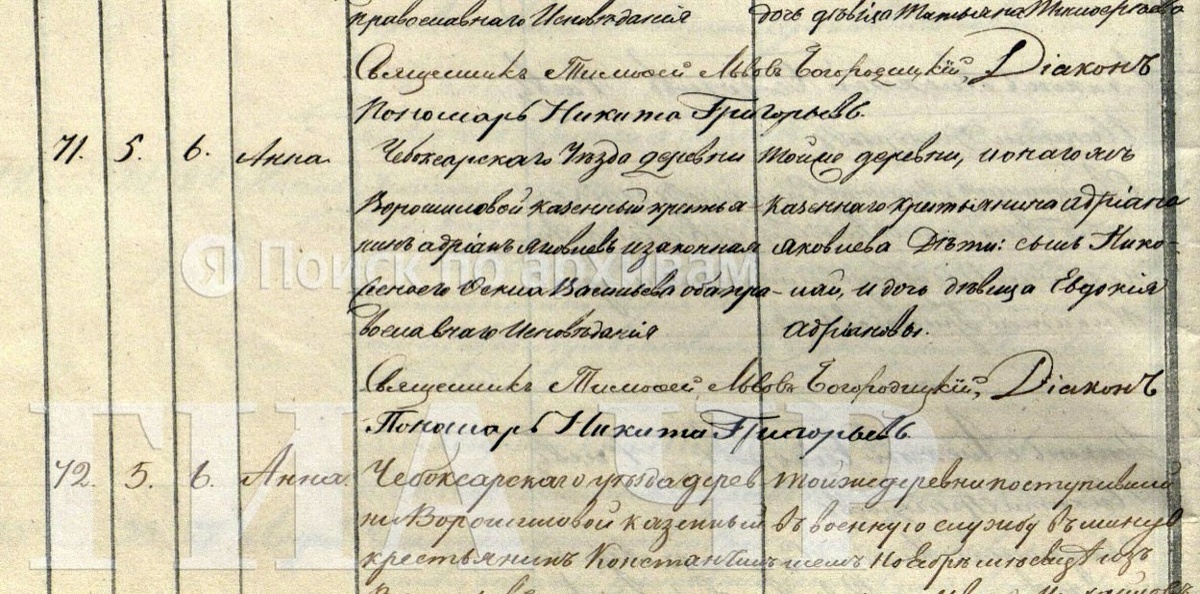 православнаго Исповѣданія
дочь дѣвица Татьяна Тимофеева
Священникъ Тимофей Львовъ Богородицкій, Діаконъ
Пономарь Никита Григорьевъ.
71. 5. 6. Анна.
Чебоксарскаго Уѣзда деревни
Ворошиловой казенный крестья-
нинъ адріанъ яковлевъ и законная
Васильева оба пра-
вославнаго Исповѣданія
Тойже деревни,
казеннаго крестьянина адріана
яковлева Дѣти: сынъ Нико-
лай, и дочь дѣвица Евдокія
адріановы.
Священникъ Тимофей Львовъ Богородицкій, Діаконъ
Пономарь Никита Григорьевъ.
72. 5. 6. Анна.
Чебоксарскаго уѣзда дерев-
ни Ворошиловой казенный
крестьянинъ Константинъ
тойже деревни поступивший
въ военную службу въ минув
шемъ Ноябрѣ мѣсяцѣ
Я Поиск по архивам
ГИА ЧР